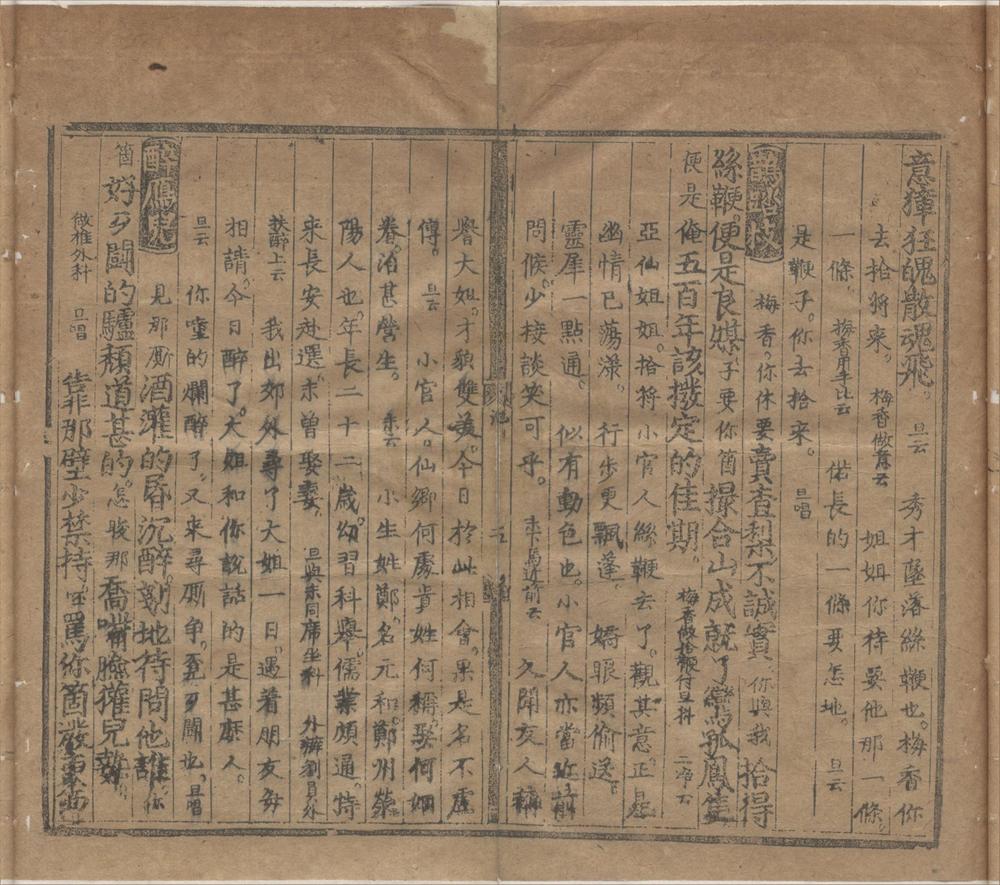 意獐狂魄散魂飛。旦云秀才墜落絲鞭也。梅香你
去拾將来。梅香做意云姐姐你待要他那一條。
一條。梅香用手比云偌長的一條要怎地。旦云
是鞭子。你去拾来。旦唱
鵲踏枝梅香。你休要賣查梨。不誠實。你與我拾得
絲鞭。便是良媒。子要你箇撮合山成就了鸞孤鳳隻
便是俺五百年該撥定的佳期。梅香做拾鞭付旦科二净云
亞仙姐姐。拾將小官人絲鞭去了。觀其意。正是
幽情已蕩漾。行步更飄蓬。嬌眼頻偷送。
靈犀一點通。似有動色也。小官人亦當近前
問候。少接談笑可乎。末下馬近前云久聞友人稱
譽大姐。才貌雙美。今日於此相會。果是名不虛
傳。旦云小官人。仙鄉何處。貴姓何稱。娶何姻
眷。治甚營生。末云小生姓鄭。名元和。鄭州滎
陽人也。年長二十二歲。幼習科舉。儒業頗通。特
来長安赴選。未曾娶妻。旦與末同席坐科外辦劉員外
扶醉上云我出郊外尋了大姐一日。遇着朋友每
相請。今日醉了。大姐和你說話的是甚麽人。
旦云你噇的爛醉了。又来尋厮争。歪歹鬭也。旦唱
醉扶歸見那厮酒灕的昏沉醉。剗地待問他誰。你
箇好歹鬭的驢頹道甚的。怎晙那喬嘴臉獾兒勢
做推外科旦唱靠那壁少禁持。罵你箇潑東西